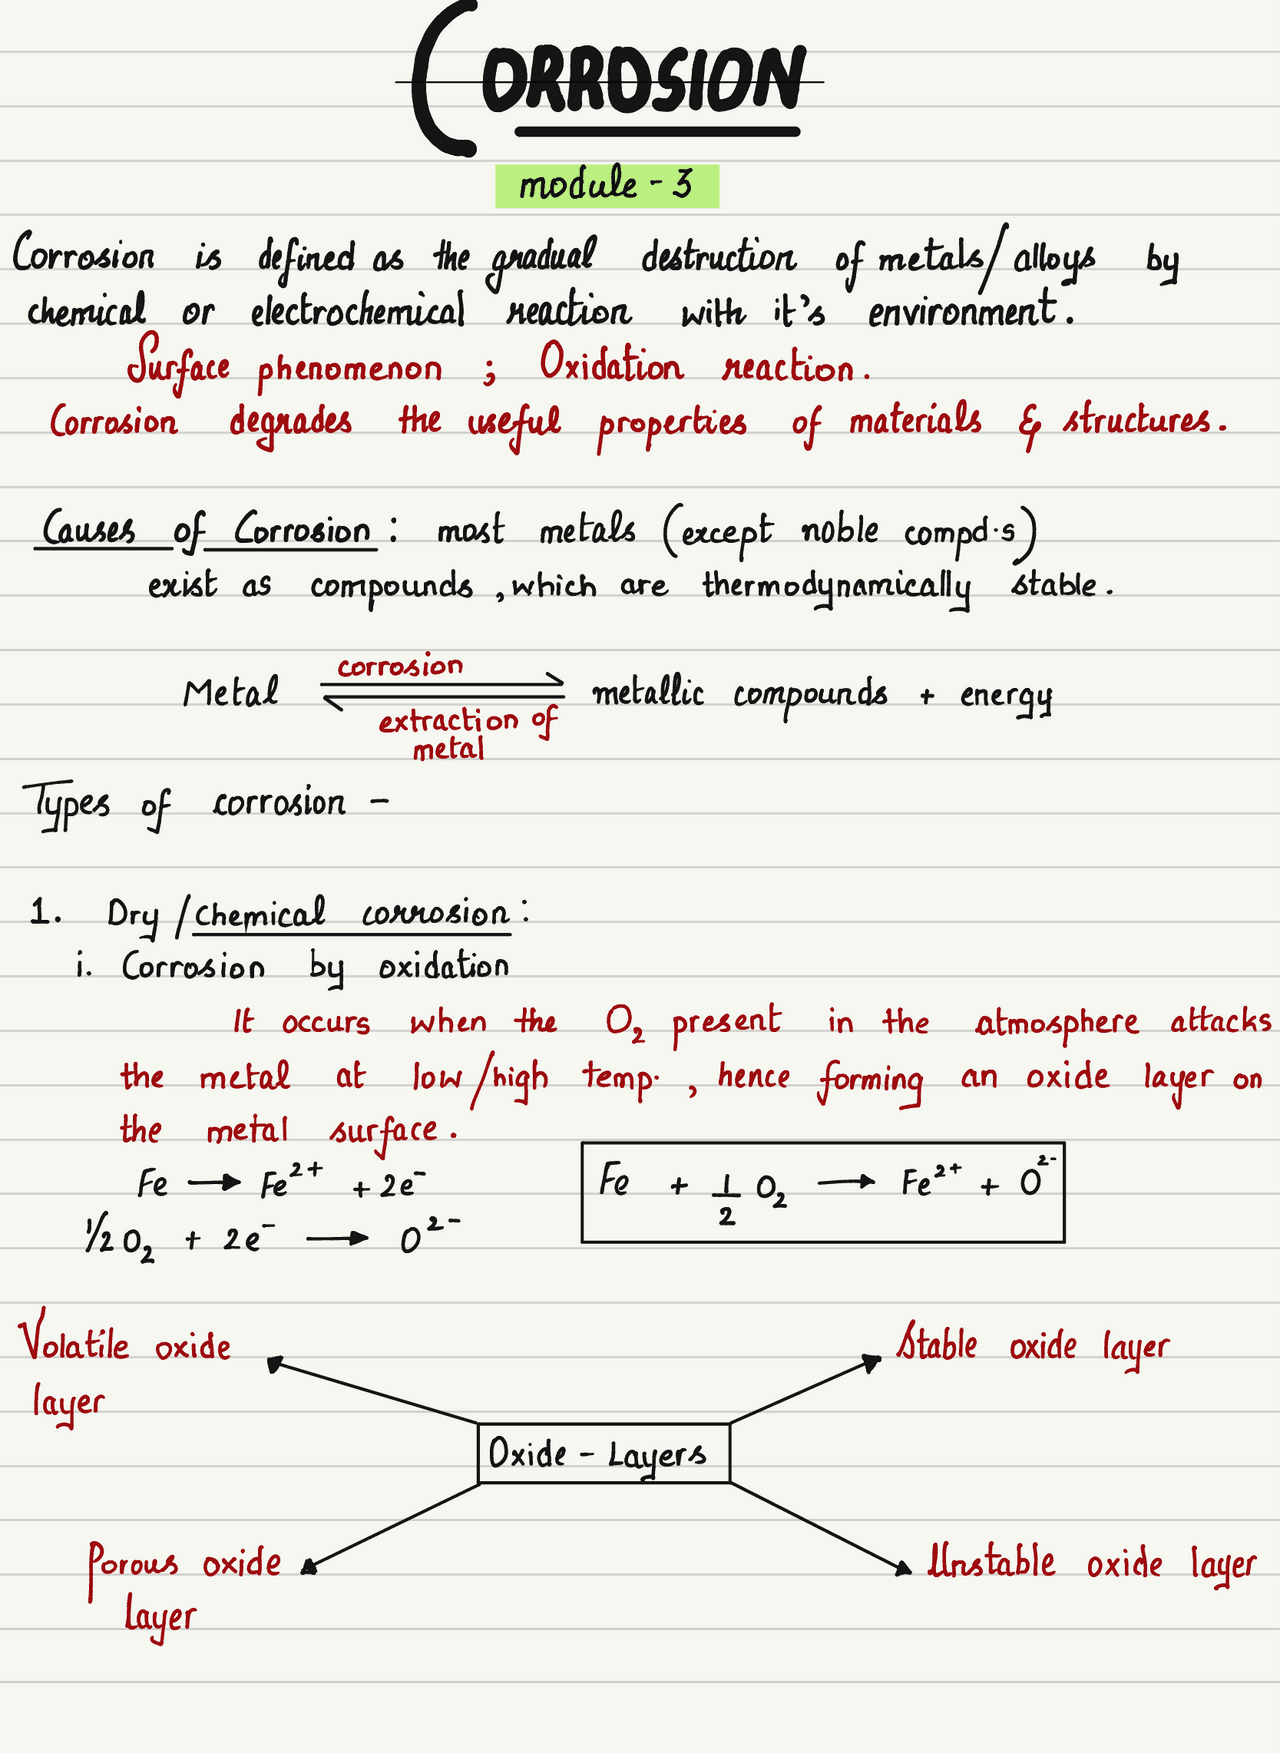 CORROSION
module - 3
Corrosion is defined as the gradual destruction of metals/alloys by
chemical or electrochemical reaction with it's environment.
Surface phenomenon ; Oxidation reaction.
Corrosion degrades the useful properties of materials & structures.
Causes of Corrosion : most metals (except noble compd.s)
exist as compounds, which are thermodynamically stable.
corrosion
Metal ⇌ metallic compounds + energy
extraction of
metal
Types of corrosion -
1. Dry/chemical corrosion:
i. Corrosion by oxidation
It occurs when the O₂ present in the atmosphere attacks
the metal at low/high temp., hence forming an oxide layer on
the metal surface.
Fe → Fe²⁺ + 2e⁻
½ O₂ + 2e⁻ → O²⁻
Fe + ½ O₂ → Fe²⁺ + O²⁻
Volatile oxide
layer
Stable oxide layer
Oxide - Layers
Porous oxide
layer
Unstable oxide layer